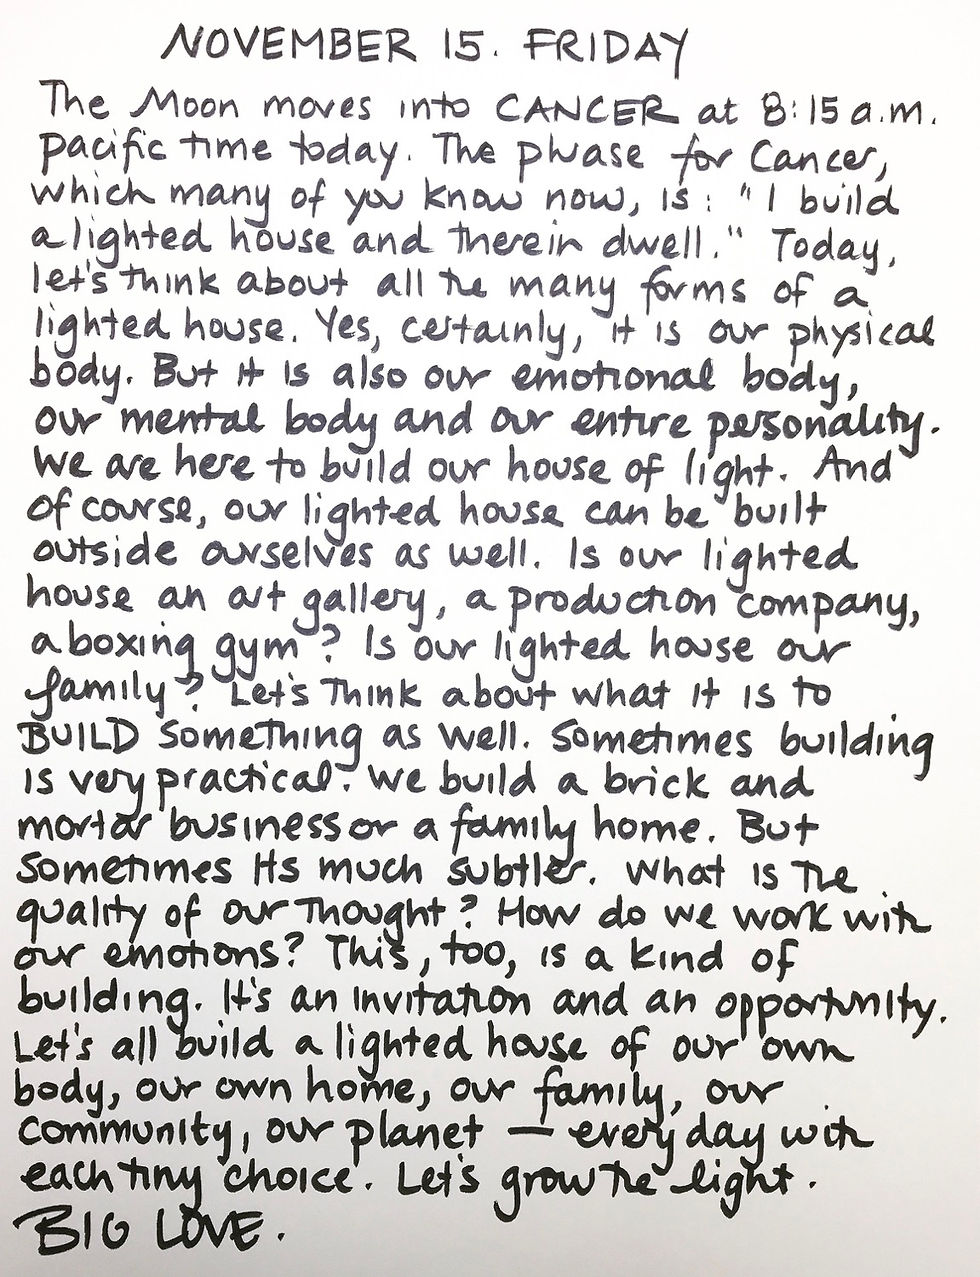 NOVEMBER 15. FRIDAY
The Moon moves into CANCER at 8:15 a.m.
pacific time today. The phrase for Cancer,
which many of you know now, is: "I build
a lighted house and therein dwell." Today,
let's think about all the many forms of a
lighted house. Yes, certainly, it is our physical
body. But it is also our emotional body,
our mental body and our entire personality.
We are here to build our house of light. And
of course, our lighted house can be built
outside ourselves as well. Is our lighted
house an art gallery, a production company,
a boxing gym? Is our lighted house our
family? Let's think about what it is to
BUILD something as well. Sometimes building
is very practical. We build a brick and
mortar business or a family home. But
sometimes its much subtler. What is the
quality of our thought? How do we work with
our emotions? This, too, is a kind of
building. It's an invitation and an opportunity.
Let's all build a lighted house of our own
body, our own home, our family, our
community, our planet — every day with
each tiny choice. Let's grow the light.
BIG LOVE.